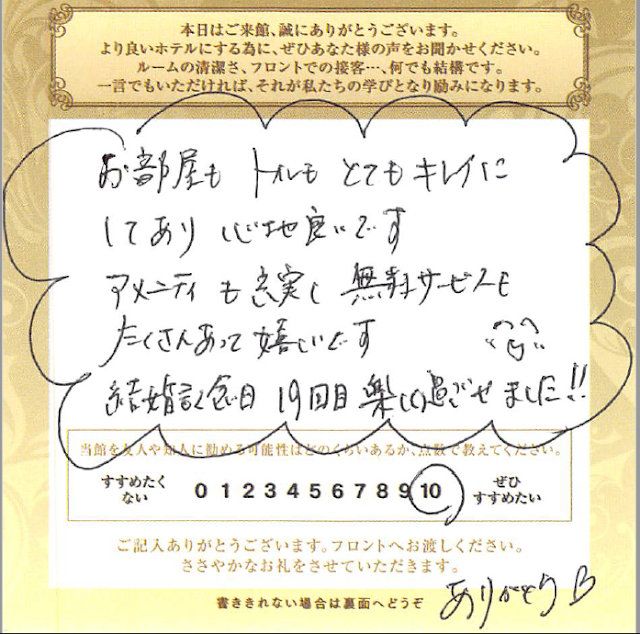 本日はご来館、誠にありがとうございます。
より良いホテルにする為に、ぜひあなた様の声をお聞かせください。
ルームの清潔さ、フロントでの接客…、何でも結構です。
一言でもいただければ、それが私たちの学びとなり励みになります。
お部屋も トイレも とてもキレイに
してあり 心地良いです
アメニティも充実し 無料サービスも
たくさんあって嬉しいです
結婚記念日 19回目 楽しく過ごせました!!
当館を友人や知人に勧める可能性はどのくらいあるか、点数で教えてください。
すすめたくない 0 1 2 3 4 5 6 7 8 9 10 ぜひすすめたい
ご記入ありがとうございます。フロントへお渡しください。
ささやかなお礼をさせていただきます。
ありがとう
書ききれない場合は裏面へどうぞ